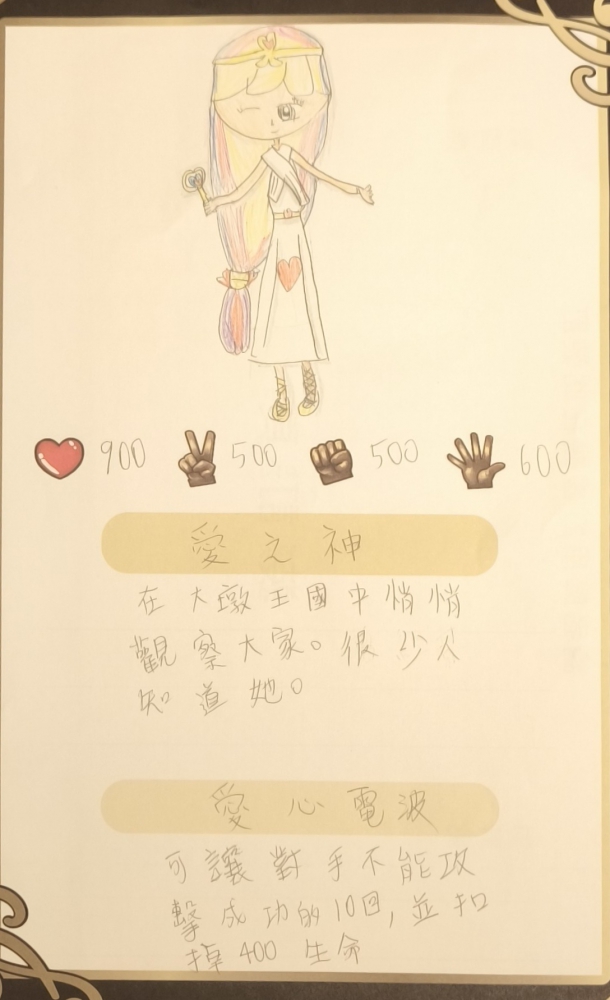 900 500 500 600
愛之神
在大墩王國中悄悄
觀察大家。很少人
知道她。
愛心電波
可讓對手不能攻
擊成功的10回,並扣
掉400生命